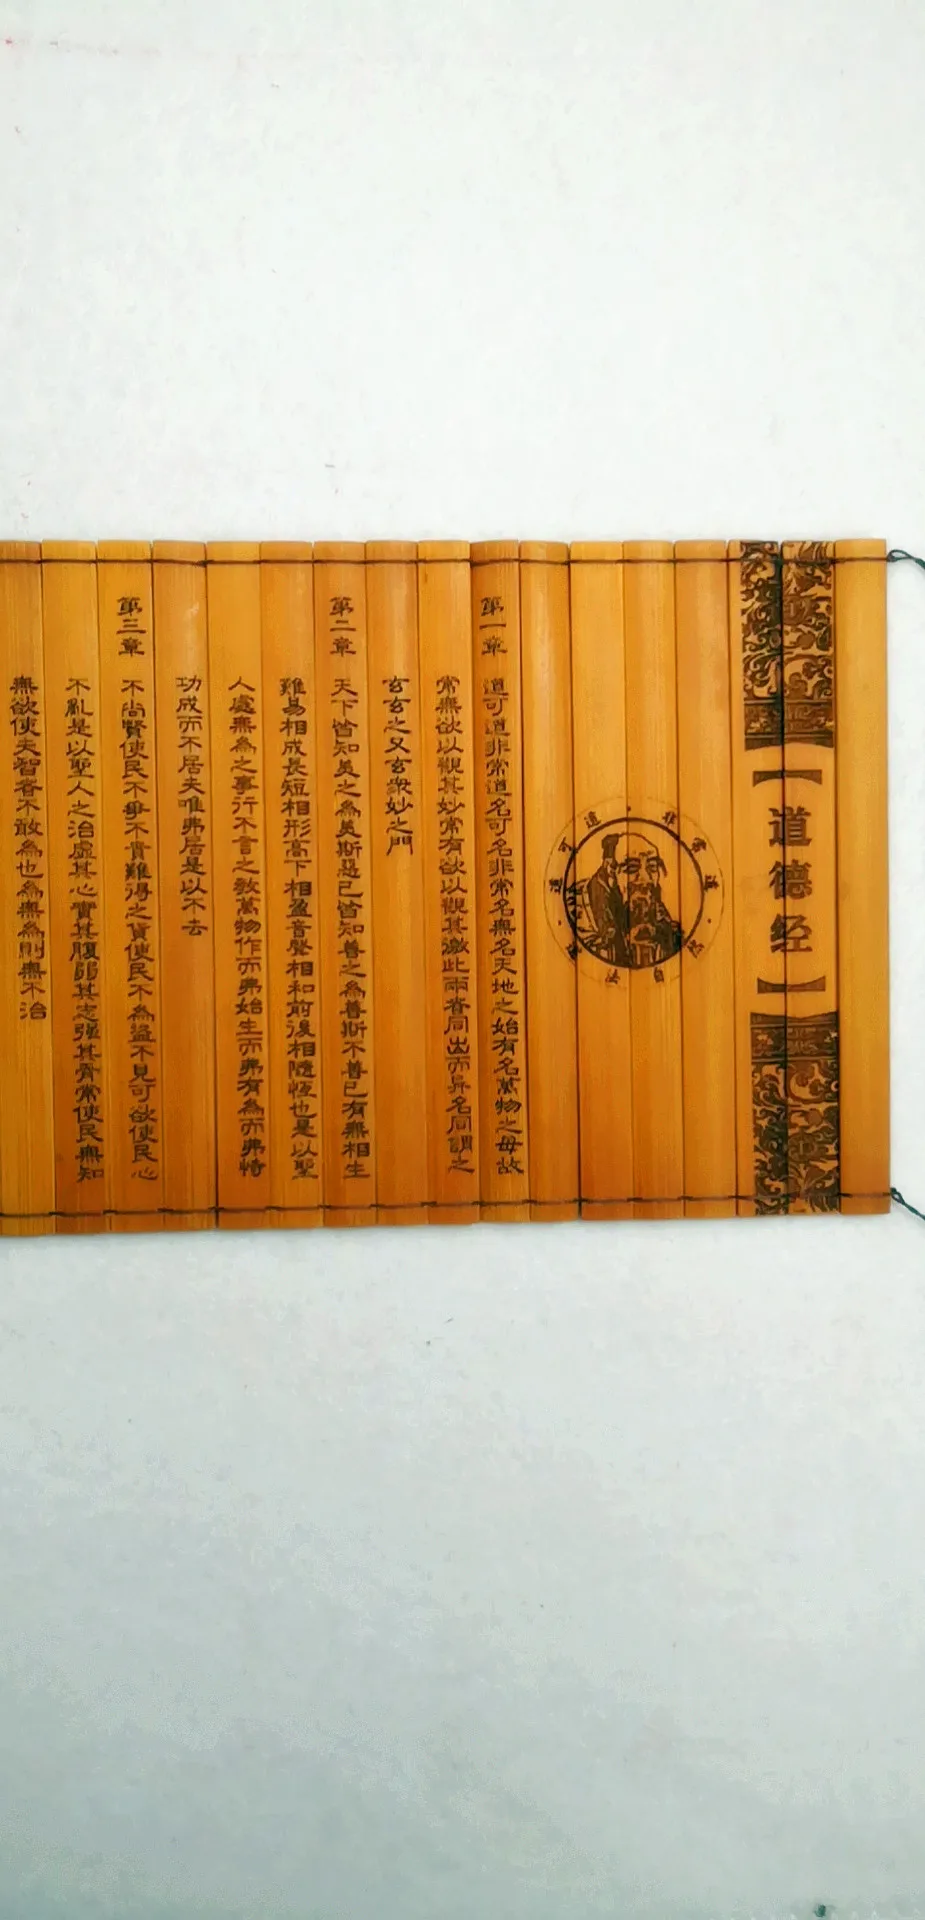 道德经
道可道非常道
道法自
第一章 道可道非常道名可名非常名無名天地之始有名萬物之母故
常無欲以觀其妙常有欲以觀其徼此兩者同出而異名同謂之
玄玄之又玄衆妙之門
第二章 天下皆知美之為美斯惡已皆知善之為善斯不善已有無相生
難易相成長短相形高下相盈音聲相和前後相隨恆也是以聖
人處無為之事行不言之教萬物作而弗始生而弗有為而弗恃
功成而不居夫唯弗居是以不去
第三章 不尚賢使民不爭不貴難得之貨使民不為盜不見可欲使民心
不亂是以聖人之治虛其心實其腹弱其志强其骨常使民無知
無欲使夫智者不敢為也為無為則無不治